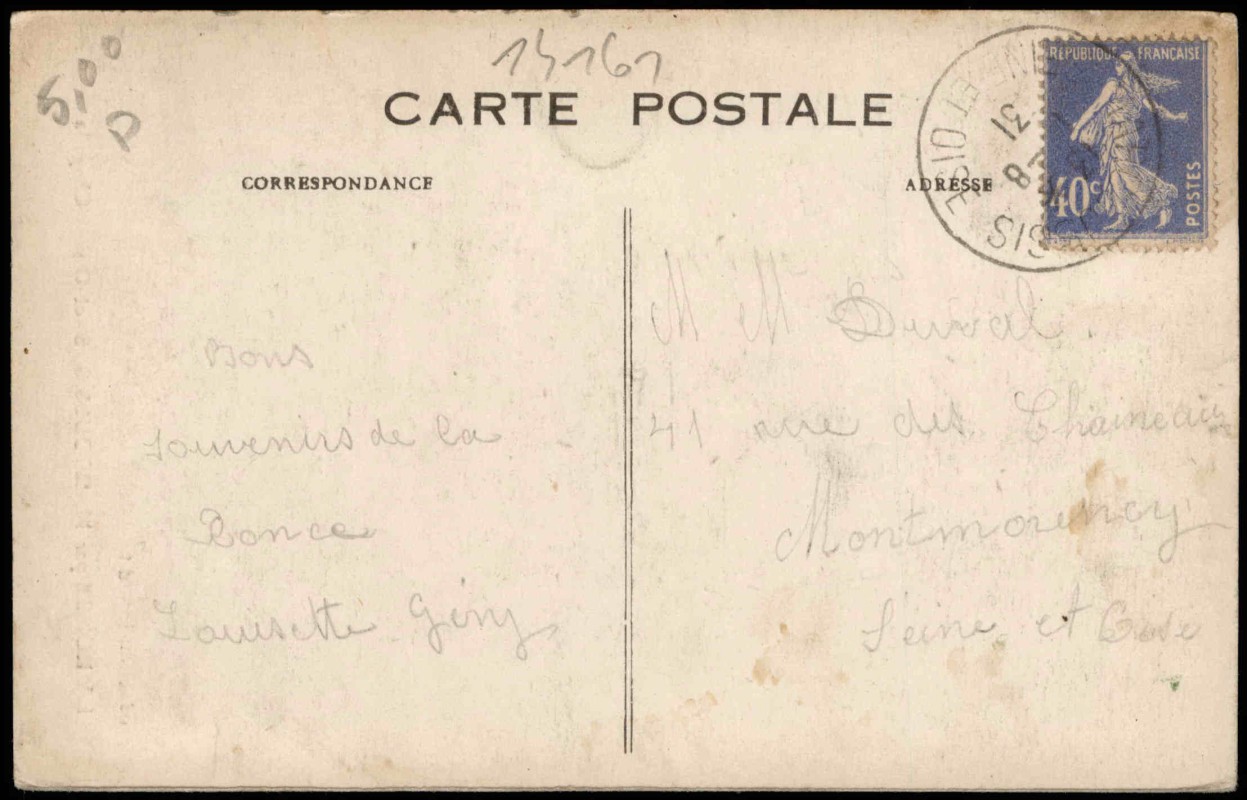 5,00
D
15161
CARTE POSTALE
CORRESPONDANCE
ADRESSE
RÉPUBLIQUE FRANÇAISE
40c
POSTES
NE ET OISE
31
8
SIS
Bons
souvenirs de la
Ronce
Louisette Gery
M M Duval
41 rue des Chaineaux
Montmorency
Seine et Oise